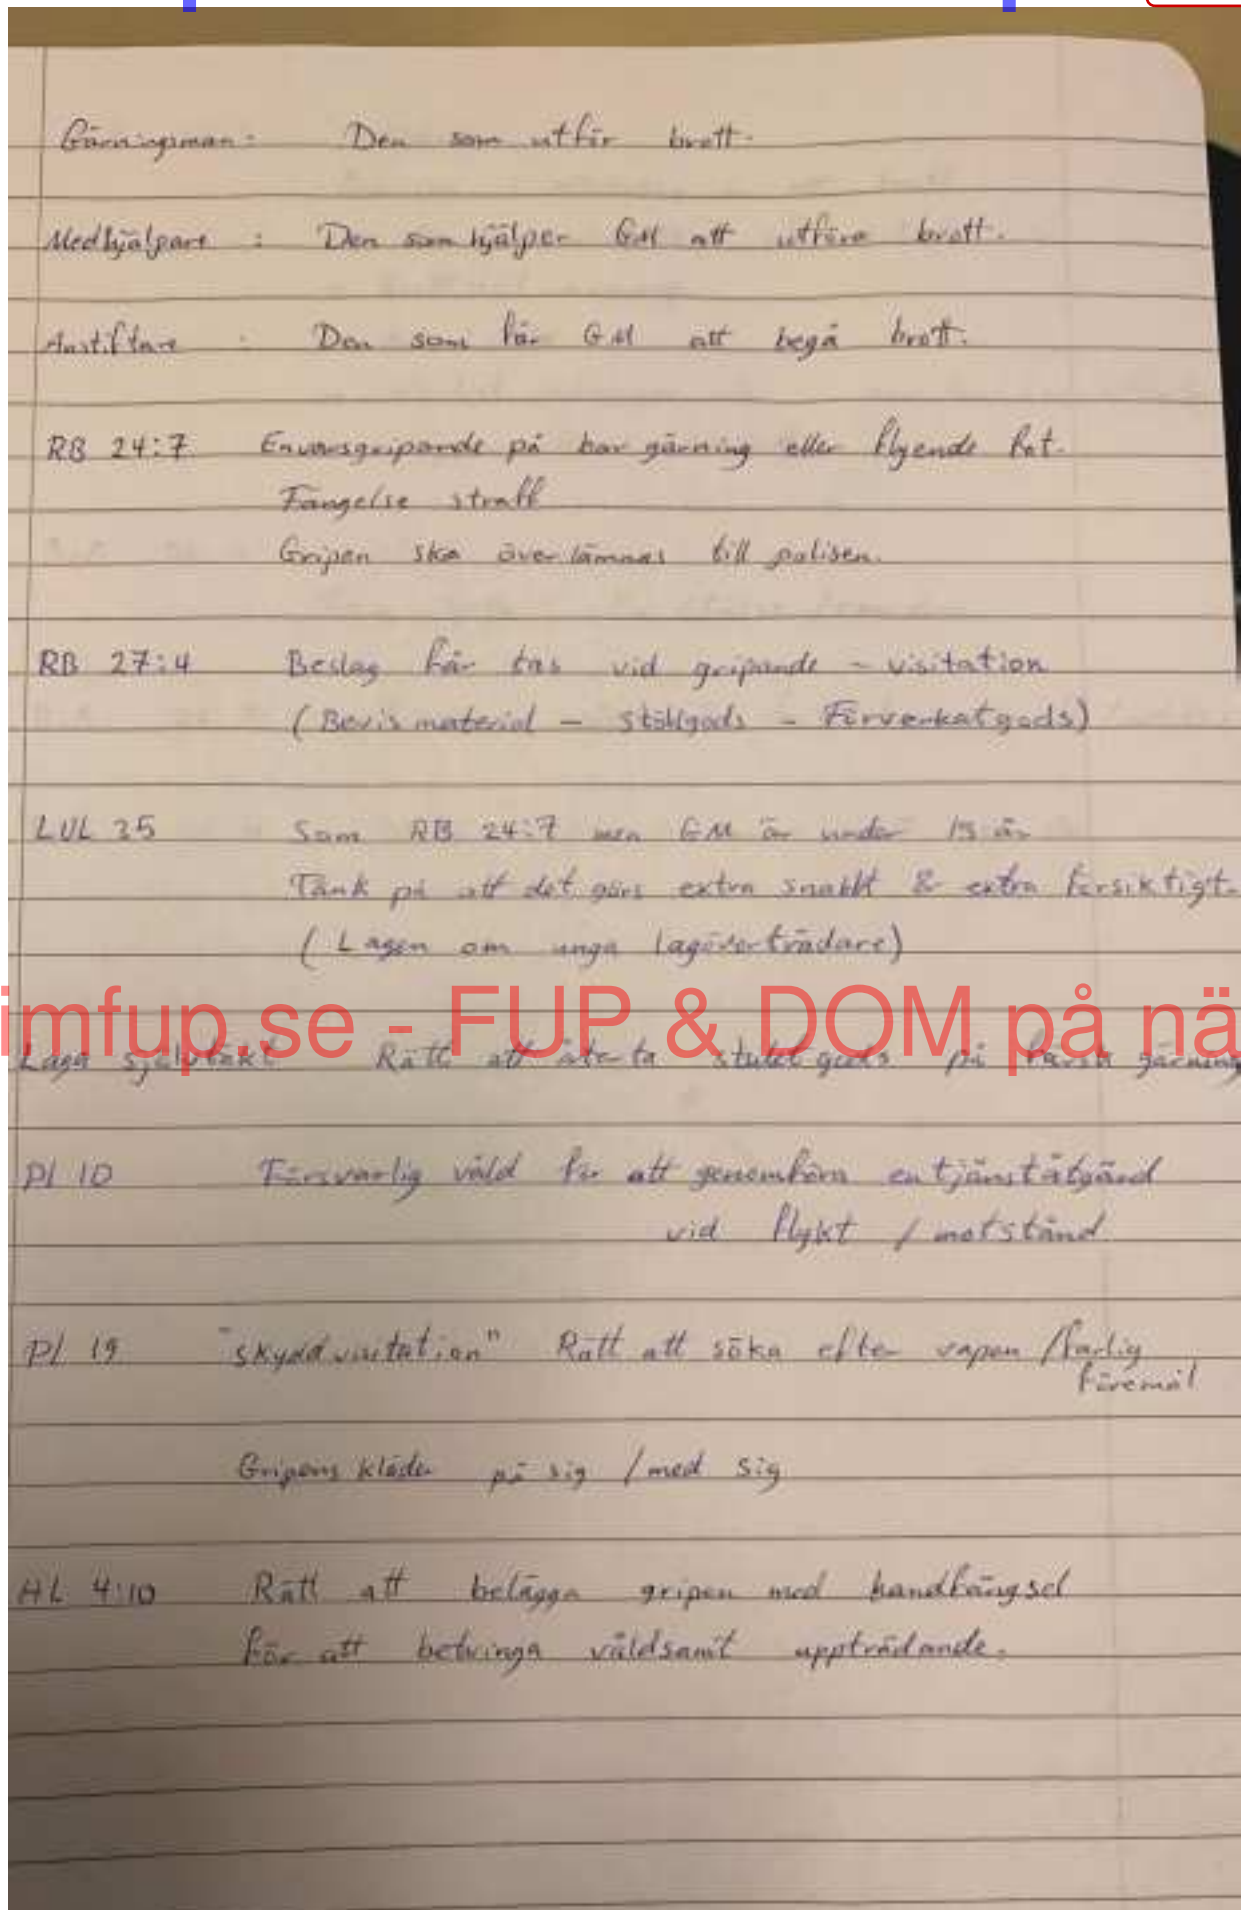 Gärningsman: Den som utför brott.
Medhjälpare : Den som hjälper GM att utföra brott.
Anstiftare : Den som får GM att begå brott.
RB 24:7 Envarsgripande på bar gärning eller flyende fot.
Fängelse straff
Gripen ska överlämnas till polisen.
RB 27:4 Beslag får tas vid gripande - visitation
(Bevis material - stöldgods - Förverkatgods)
LUL 35 Som RB 24:7 men GM är under 15 år
Tänk på att det görs extra snabbt & extra försiktigt.
(Lagen om unga lagöverträdare)
imfup.se - FUP & DOM på nä
Laga självtäkt Rätt att återta stulet gods på färsk gärning
Pl 10 Försvarlig våld för att genomföra en tjänståtgärd
vid flykt / motstånd
Pl 19 "skyddvisitation" Rätt att söka efter vapen /farlig
föremål
Gripens kläder på sig / med sig
HL 4:10 Rätt att belägga gripen med handfängsel
för att betvinga våldsamt uppträdande.